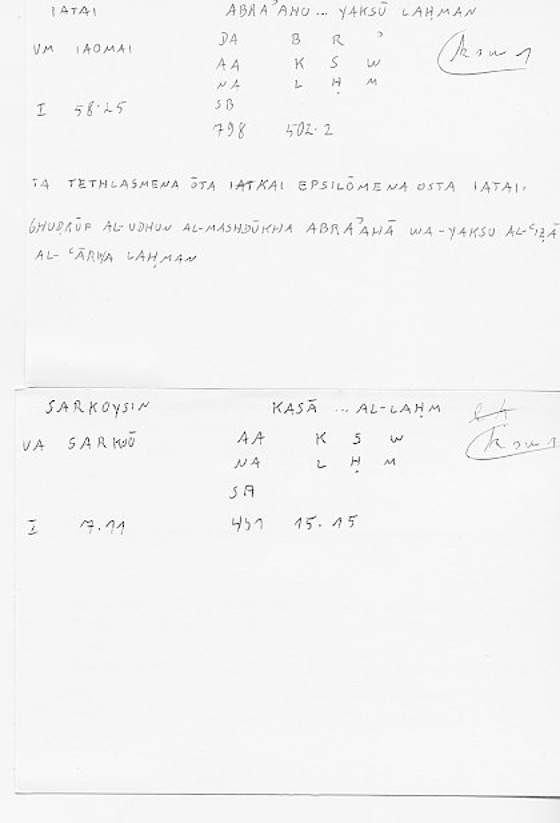 IATAI ABRAʾAHU ... YAKSŪ LAḤMAN
VM IAOMAI DA B R ʾ ksw 1
AA K S W
NA L Ḥ M
I 58.25 SB
798 502.2
TA TETHLASMENA ŌTA IATKAI EPSILŌMENA OSTA IATAI.
GHUḌRŪF AL-UDHUN AL-MASHDŪKHA ABRAʾAHĀ WA-YAKSU AL-ʿIẒĀ
AL-ʿĀRIYA LAḤMAN
SARKOYSIN KASĀ ... AL-LAḤM
VA SARKOŌ AA K S W ksw 1
NA L Ḥ M
SA
I 7.11 451 15.15